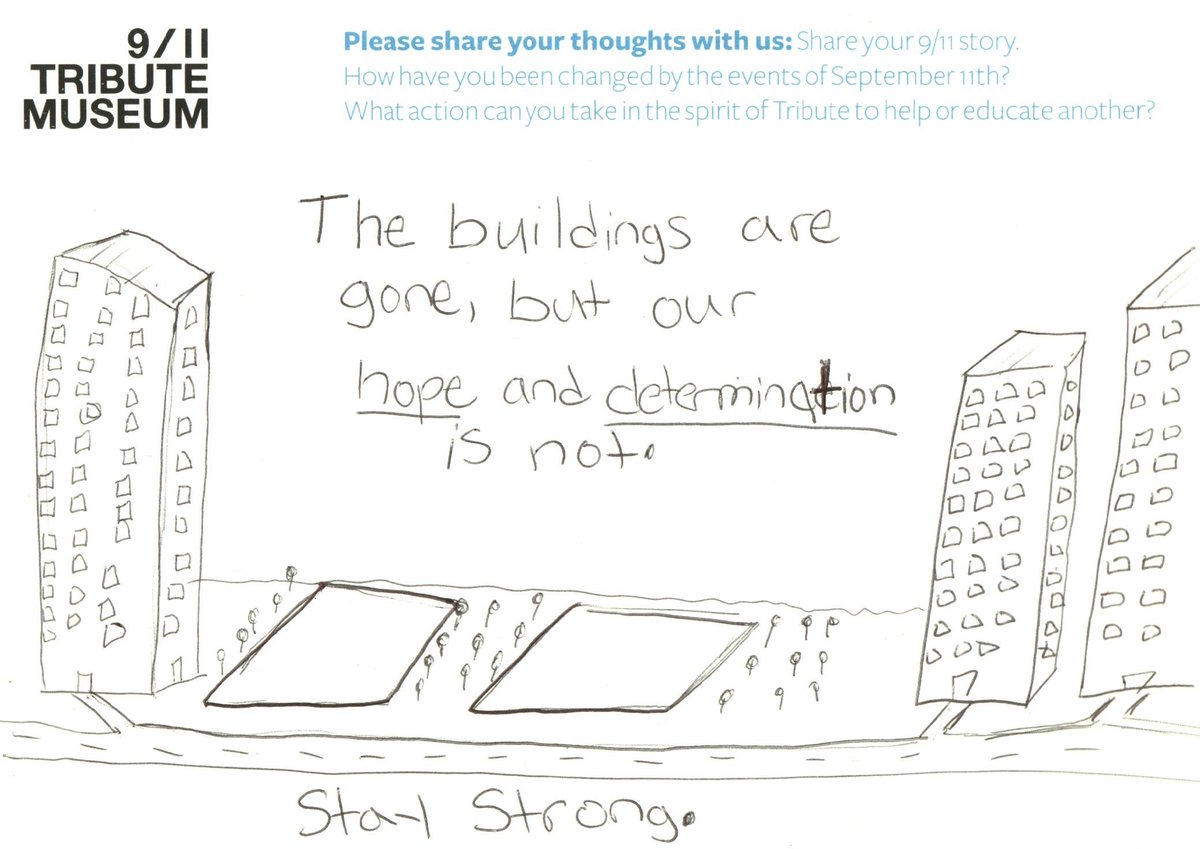 9/11
TRIBUTE
MUSEUM
Please share your thoughts with us: Share your 9/11 story.
How have you been changed by the events of September 11th?
What action can you take in the spirit of Tribute to help or educate another?
The buildings are
gone, but our
hope and determination
is not.
Stay Strong.